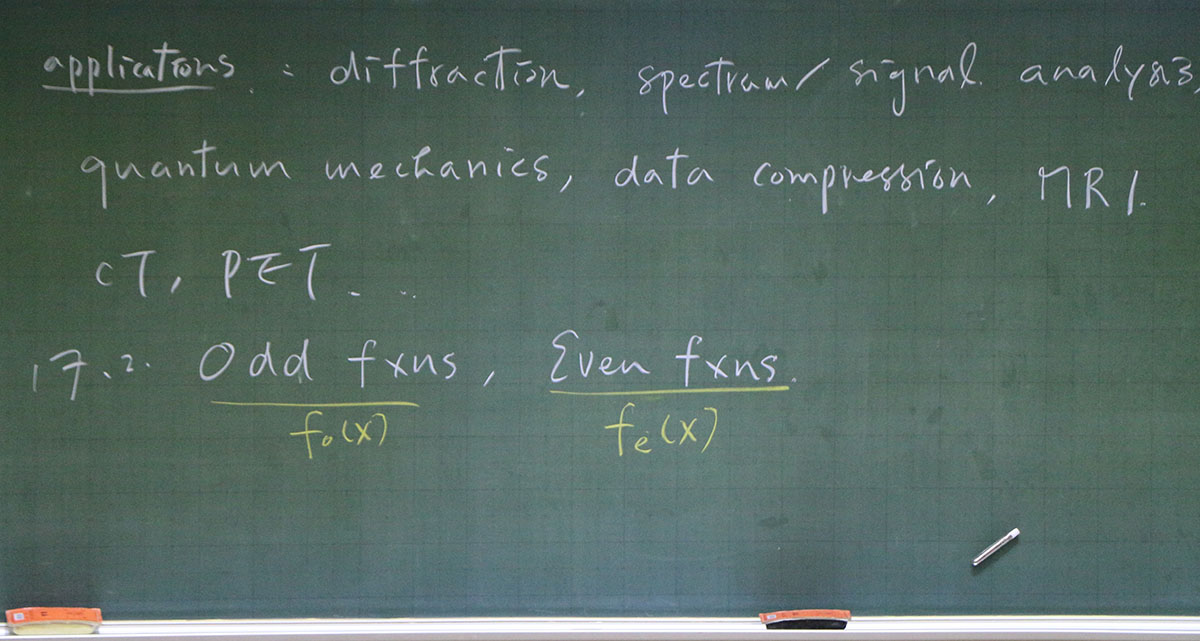 applications : diffraction, spectrum/ signal analysis,
quantum mechanics, data compression, MRI.
CT, PET. ..
17.2. Odd fxns, Even fxns.
fo(x) fe(x)